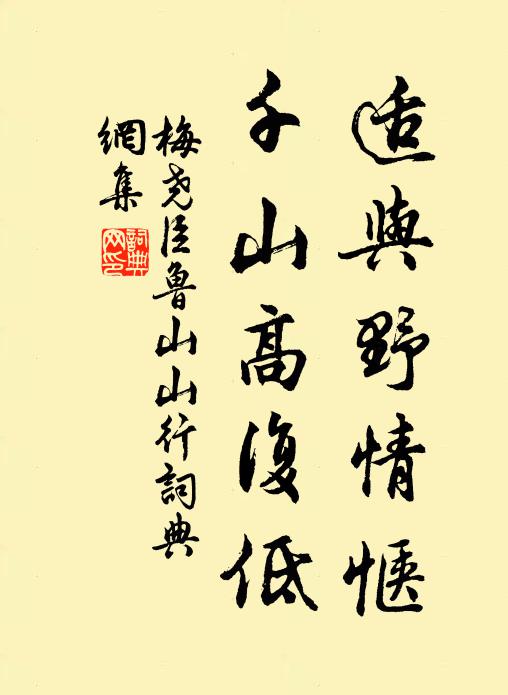 适與野情惬
千山高復低
梅尧臣魯山山行詞典
網集
詞典
网印